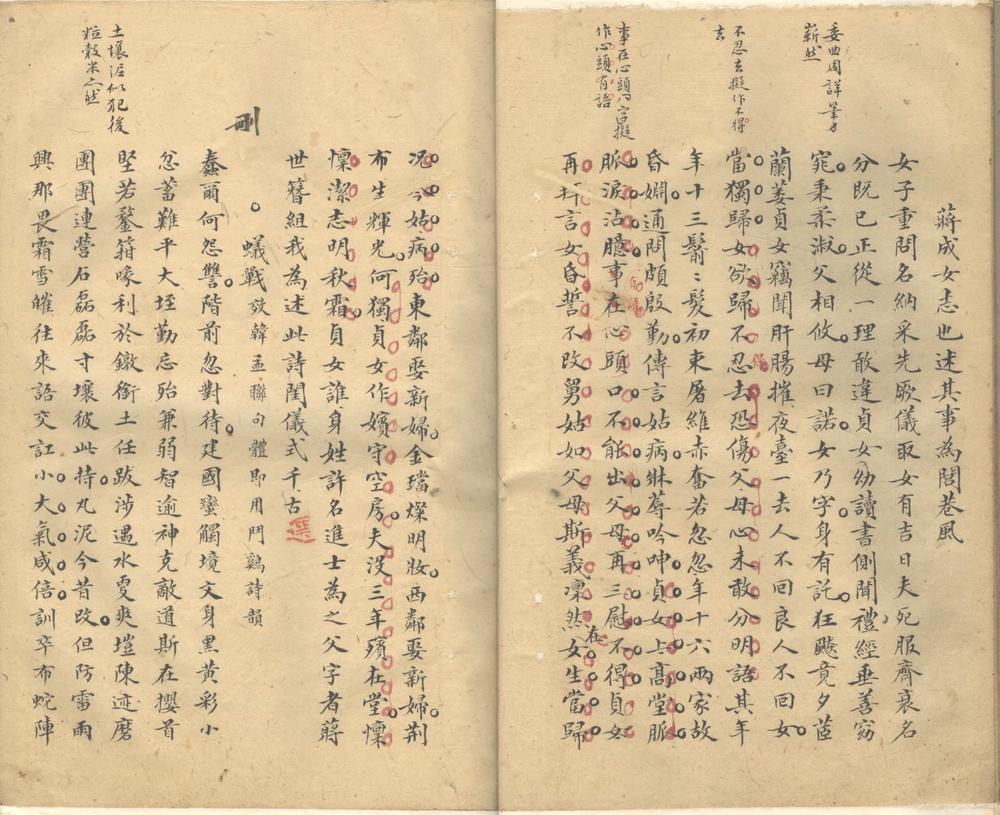 委曲周詳筆力
嶄然
不忍去擬作不得
去
事在心頭八字擬
作心頭有語
蔣成女志也述其事為閭巷風
女子重問名納采先厥儀取女有吉日夫死服齊衰名
分既已正從一理敢違貞女幼讀書側聞禮經垂善窈
窕秉柔淑父相攸母曰諾女乃字身有託狂飈竟夕萎
蘭萎貞女竊聞肝腸摧夜臺一去人不回良人不回女
當獨歸女欲歸不忍去恐傷父母心未敢分明語其年
年十三鬋鬋髮初束屠維赤奮若忽忽年十六兩家故
昏姻通問頗殷勤傳言姑病牀蓐吟呻貞女上高堂脈
脈淚沾臆事在心頭口不能出父母再三慰不得貞女
再拜言女昏誓不改舅姑如父母斯義凜然在女生當歸
土壤泥似犯後
粒穀米亦然
刪
況今姑病殆東鄰娶新婦金璫燦明妝西鄰娶新婦荆
布生輝光何獨貞女作嬪守空房夫沒三年殯在堂懍
懍潔志明秋霜貞女誰身姓許名進士為之父字者蔣
世簪組我為述此詩閨儀式千古
蟻戰效韓孟聯句體即用鬥鷄詩韻
蠢爾何怨讐階前忽對待建國蠻觸境文身黑黃彩小
忿蓄難平大垤勤忘殆兼弱智逾神克敵道斯在攖首
堅若鍪箝喙利於鐓銜土任跋涉遇水更爽塏陳迹磨
團團連營石磊磊寸壤彼此持丸泥今昔改但防雷雨
興那畏霜雪皠往來語交訌小大氣咸倍訓卒布蛇陣